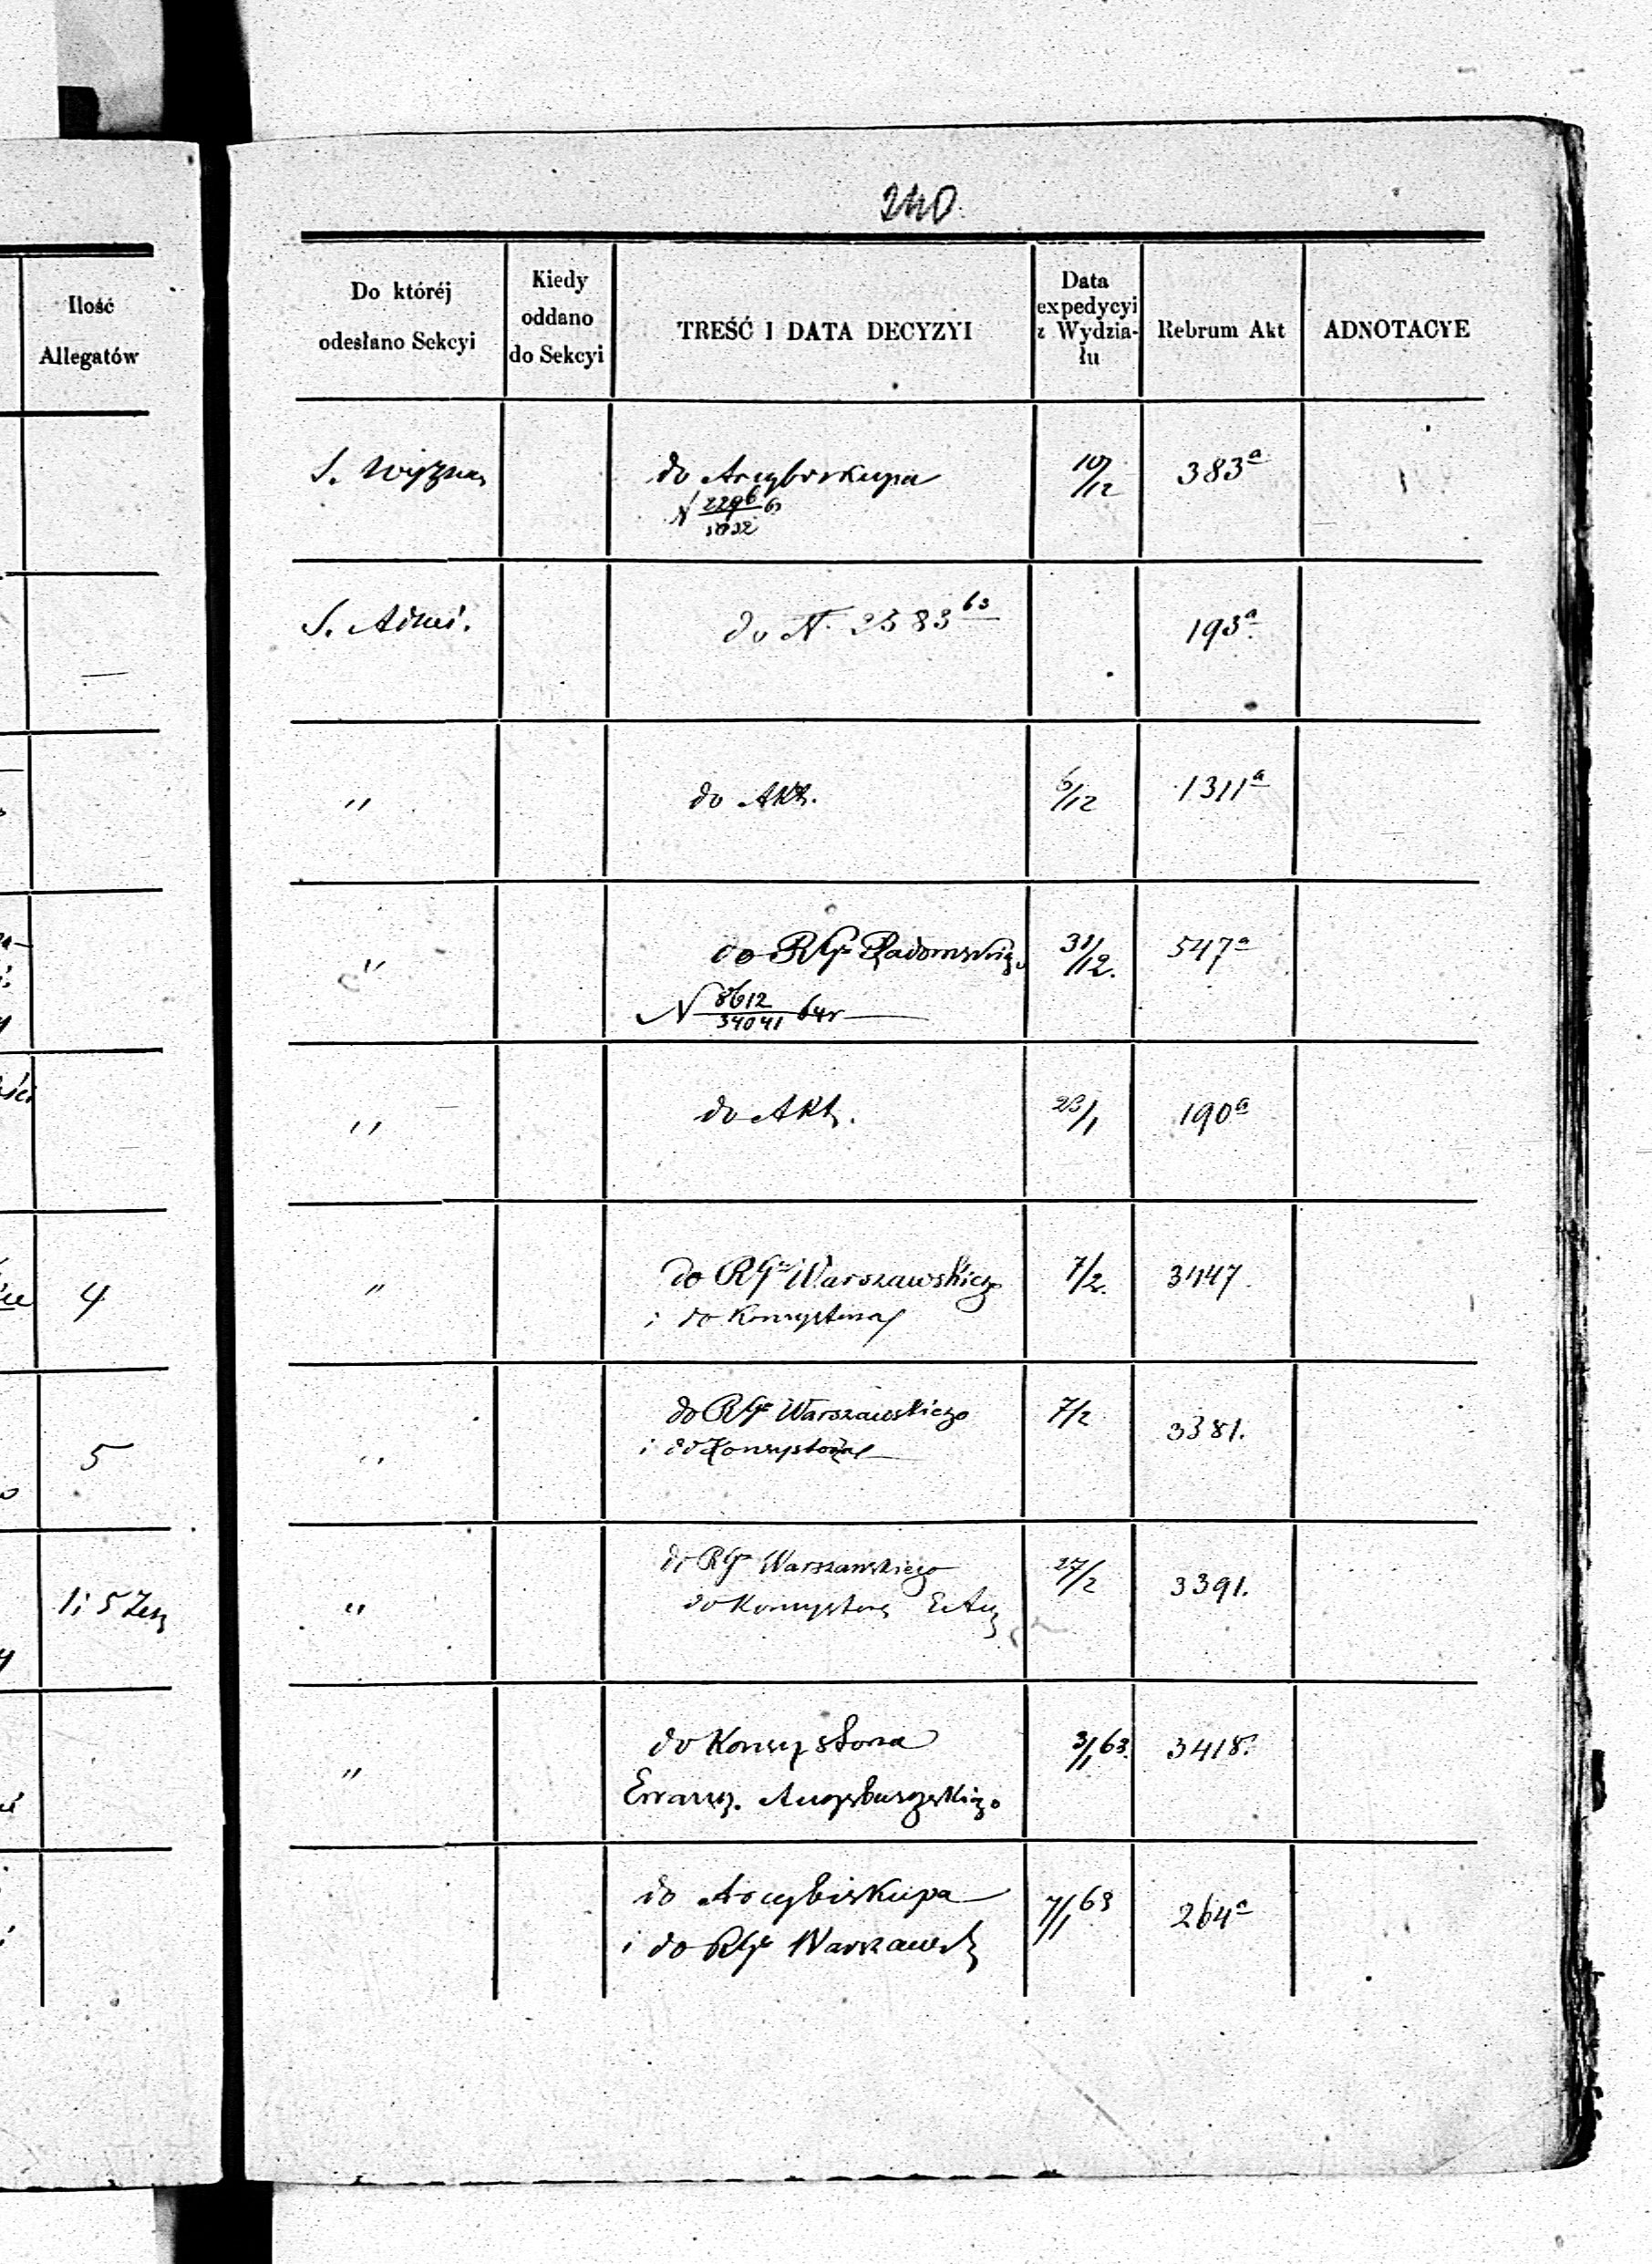 240
Ilość
Allegatów
4
5
1 i 5 Zesz
Do któréj
odesłano Sekcyi
Kiedy
oddano
do Sekcyi
TREŚĆ I DATA DECYZYI
Data
expedycyi
z Wydzia-
łu
Rebrum Akt
ADNOTACYE
S. Wyzna
do Arcybiskupa
N 2296
10/12
383a
S. Admi.
do N. 2583 63
193a
"
do Akt.
6/12
1311a
"
do RGo Radomskiego
N 8612/34041 64r
31/12.
547a
"
do Akt.
23/1
190a
"
do RGo Warszawskiego
i do Konsystorza
7/2.
3447
"
do RGo Warszawskiego
i do Konsystorza
7/2
3381.
"
do RGo Warszawskiego
do Konsystorz E. Au
27/2
3391.
"
do Konsystorza
Ewang. Augsburgskiego
3/1 63.
3418.
do Arcybiskupa
i do RGo Warszawsk
7/1 63
264a